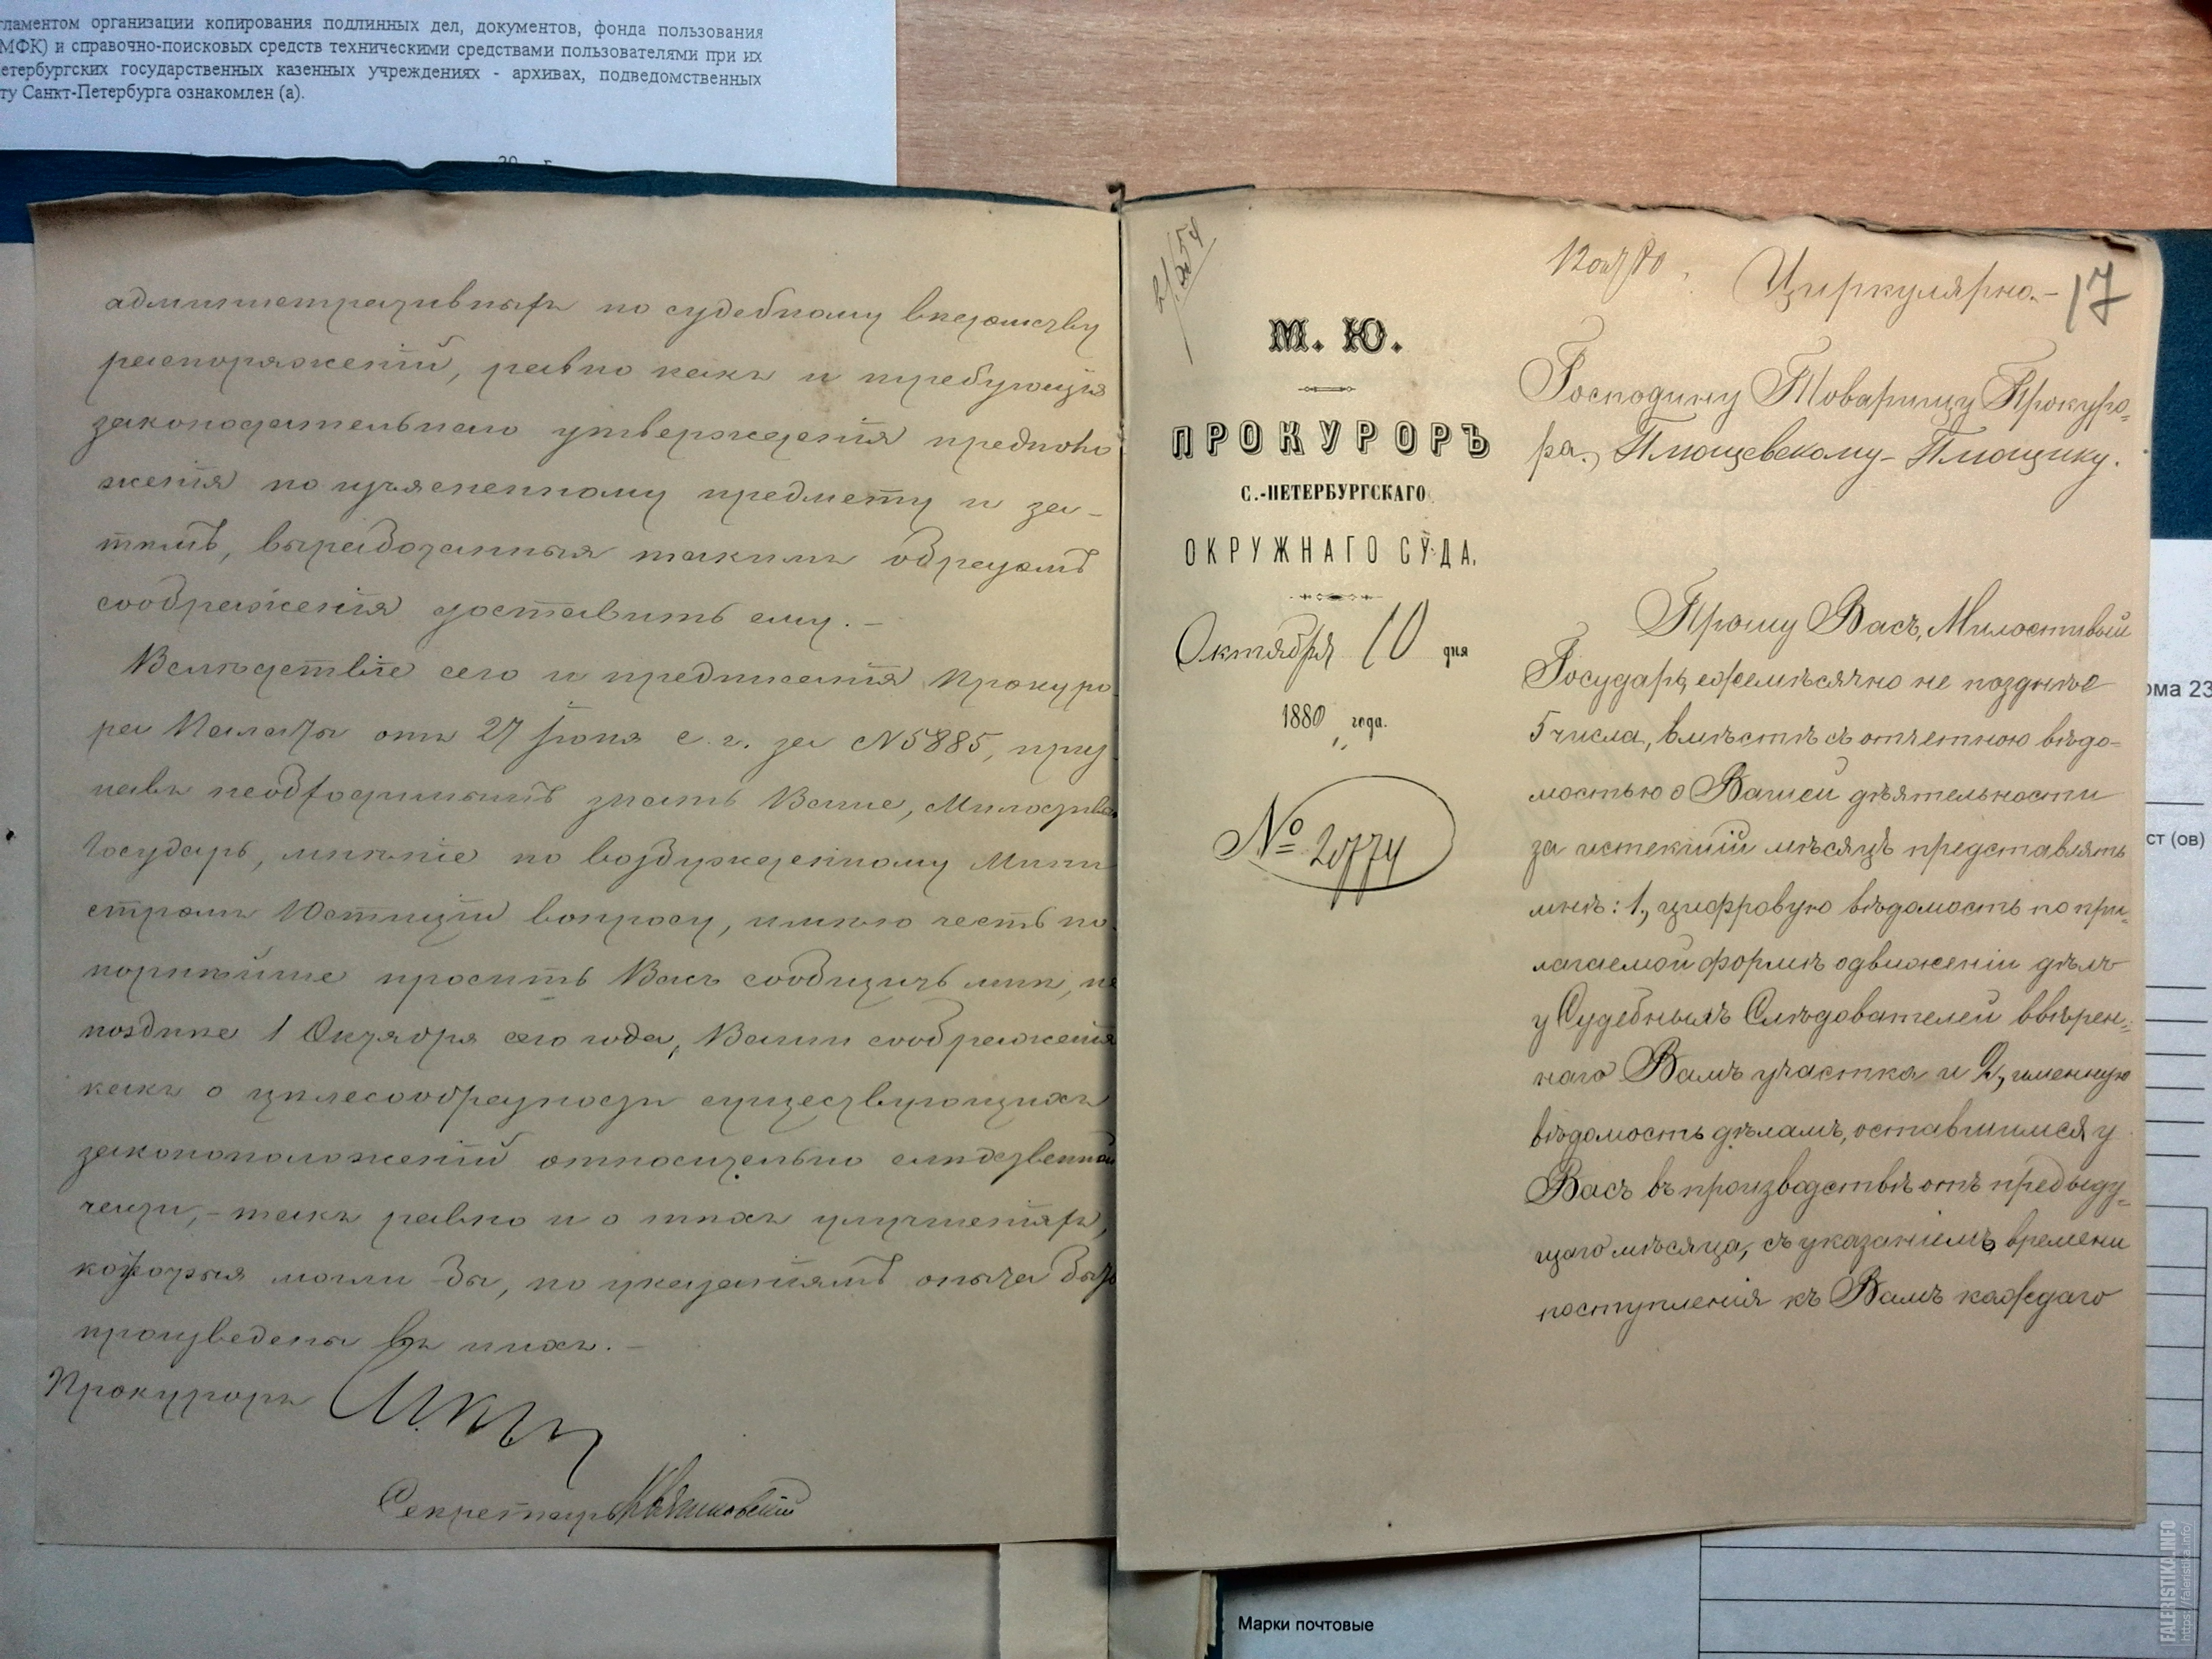 гламентом организации копирования подлинных дел, документов, фонда пользования
МФК) и справочно-поисковых средств техническими средствами пользователями при их
етербургских государственных казенных учреждениях - архивах, подведомственных
ту Санкт-Петербурга ознакомлен (а).
20 г
административныхъ по судебному вѣдомству
распоряженій, равно какъ и требующія
законодательнаго утвержденія предполо
женія по изъясненному предмету и за-
тѣмъ, выработанныя такимъ образомъ
соображенія доставить ему. –
Вслѣдствіе сего и предписанія Прокуро
ра Палаты отъ 27 Іюня с. г. за № 5885, приз
навъ необходимымъ знать Ваше, Милостивый
Государь, мнѣніе по возбужденному Мини
стромъ Юстиціи вопросу, имѣю честь по
корнѣйше просить Васъ сообщить мнѣ, не
позднѣе 1 Октября сего года, Ваши соображенія
какъ о цѣлесообразности существующихъ
законоположеній относительно слѣдственной
части, – такъ равно и о тѣхъ улучшеніяхъ,
которыя могли бы, по указаніямъ опыта быть
произведены въ нихъ. –
Прокуроръ
Секретарь
12 окт 80
Циркулярно. –
17
М. Ю.
ПРОКУРОРЪ
С.-ПЕТЕРБУРГСКАГО
ОКРУЖНАГО СУДА.
Октября 10 дня
1880 года.
№ 20774
Господину Товарищу Прокуро-
ра, Плющевскому-Плющику.
Прошу Васъ, Милостивый
Государь, ежемѣсячно не позднѣе
5 числа, вмѣстѣ съ отчетною вѣдо-
мостью о Вашей дѣятельности
за истекшій мѣсяцъ представлять
мнѣ: 1, цифровую вѣдомость по при-
лагаемой формѣ о движеніи дѣлъ
у Судебныхъ Слѣдователей ввѣрен-
наго Вамъ участка и 2, именную
вѣдомость дѣламъ, оставшимся у
Васъ въ производствѣ отъ предыду-
щаго мѣсяца, съ указаніемъ времени
поступленія къ Вамъ каждаго
ома 23
ст (ов)
Марки почтовые
FALERISTIKA.INFO
https://faleristika.info/